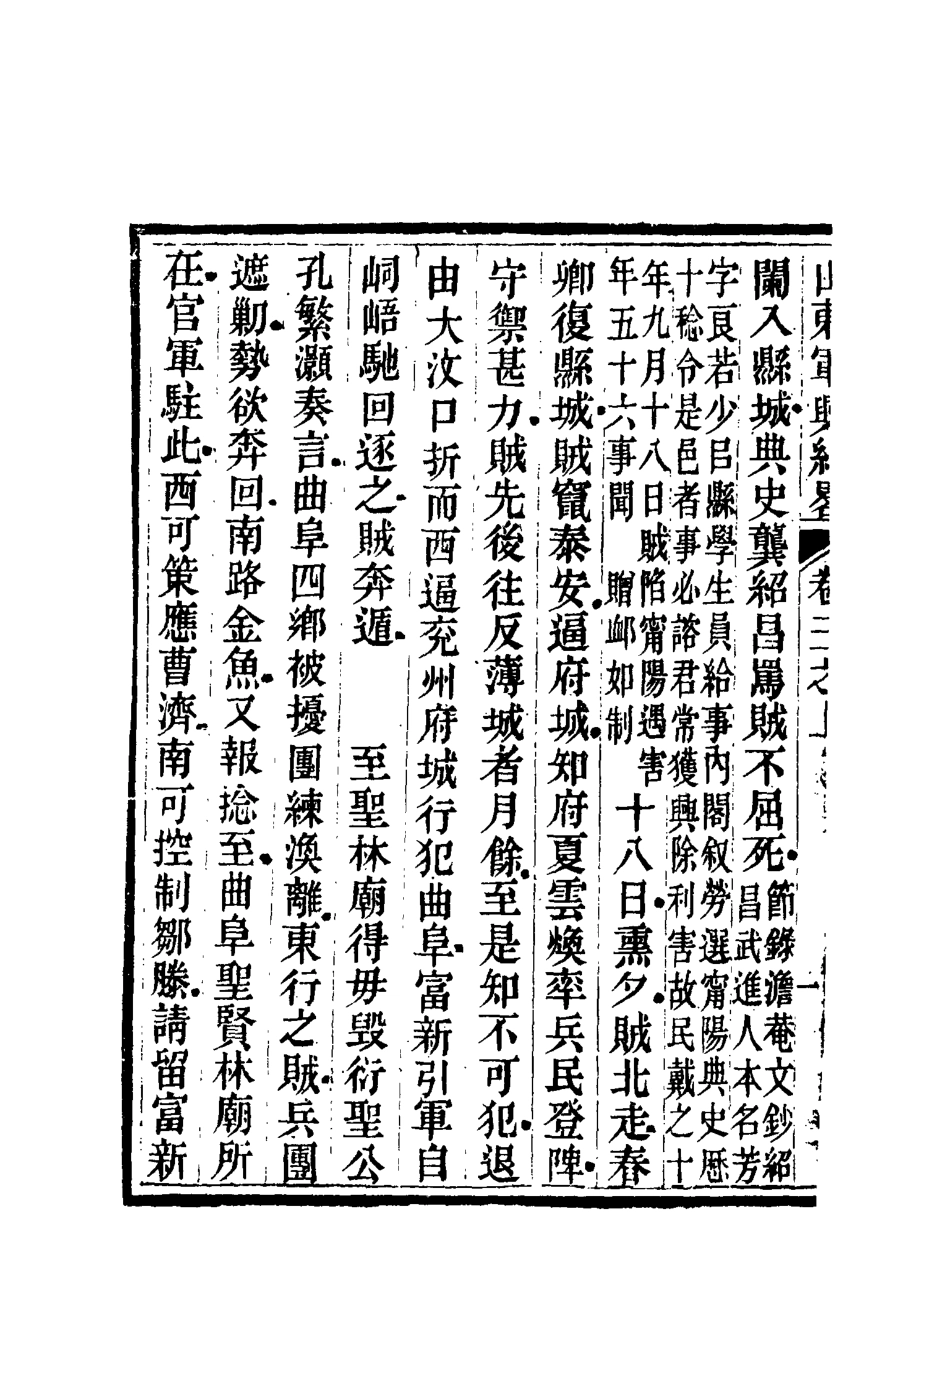 山東軍興紀畧 卷三之上 一
闌入縣城典史龔紹昌罵賊不屈死節錄澹菴文鈔紹
昌武進人本名芳
字莨若少㠯縣學生員給事內閣叙勞選甯陽典史歴
十稔令是邑者事必諮君常獲興除利害故民戴之十
年九月十八日賊陷甯陽遇害
年五十六事聞 贈卹如制
十八日熏夕賊北走春
卿復縣城賊竄泰安逼府城知府夏雲煥率兵民登陴
守禦甚力賊先後往反薄城者月餘至是知不可犯退
由大汶口折而西逼兖州府城行犯曲阜富新引軍自
峒峿馳回逐之賊奔遁 至聖林廟得毋毀衍聖公
孔繁灝奏言曲阜四鄉被擾團練渙離東行之賊兵團
遮勦勢欲奔回南路金魚又報捻至曲阜聖賢林廟所
在官軍駐此西可策應曹濟南可控制鄒滕請留富新